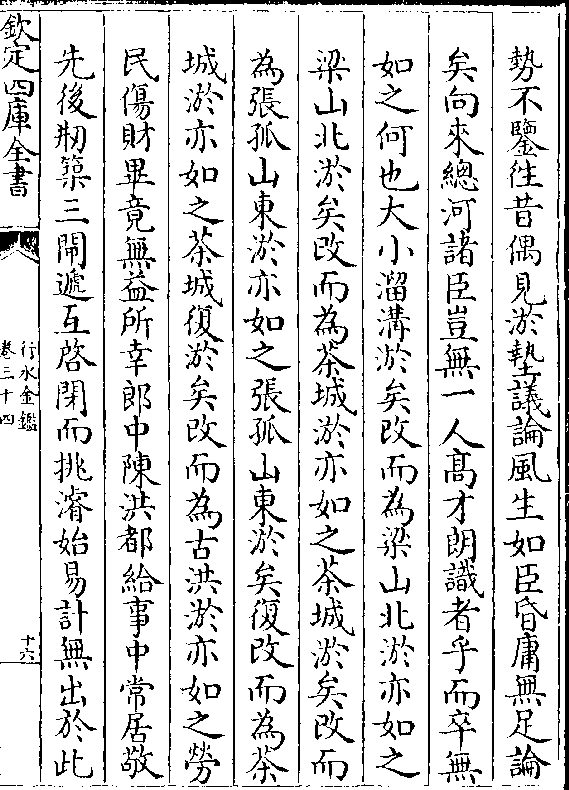 勢不鑒徃昔偶見淤墊議論風生如臣昏庸無足論
矣向來總河諸臣豈無一人髙才朗識者乎而卒無
如之何也大小溜溝淤矣改而為梁山北淤亦如之
梁山北淤矣改而為茶城淤亦如之茶城淤矣改而
為張孤山東淤亦如之張孤山東淤矣復改而為茶
城淤亦如之茶城復淤矣改而為古洪淤亦如之勞
民傷財畢竟無益所幸郎中陳洪都給事中常居敬
先後剏築三閘遞互啓閉而挑濬始易計無出於此
欽定四庫全書
行水金鑑
卷三十四
十六